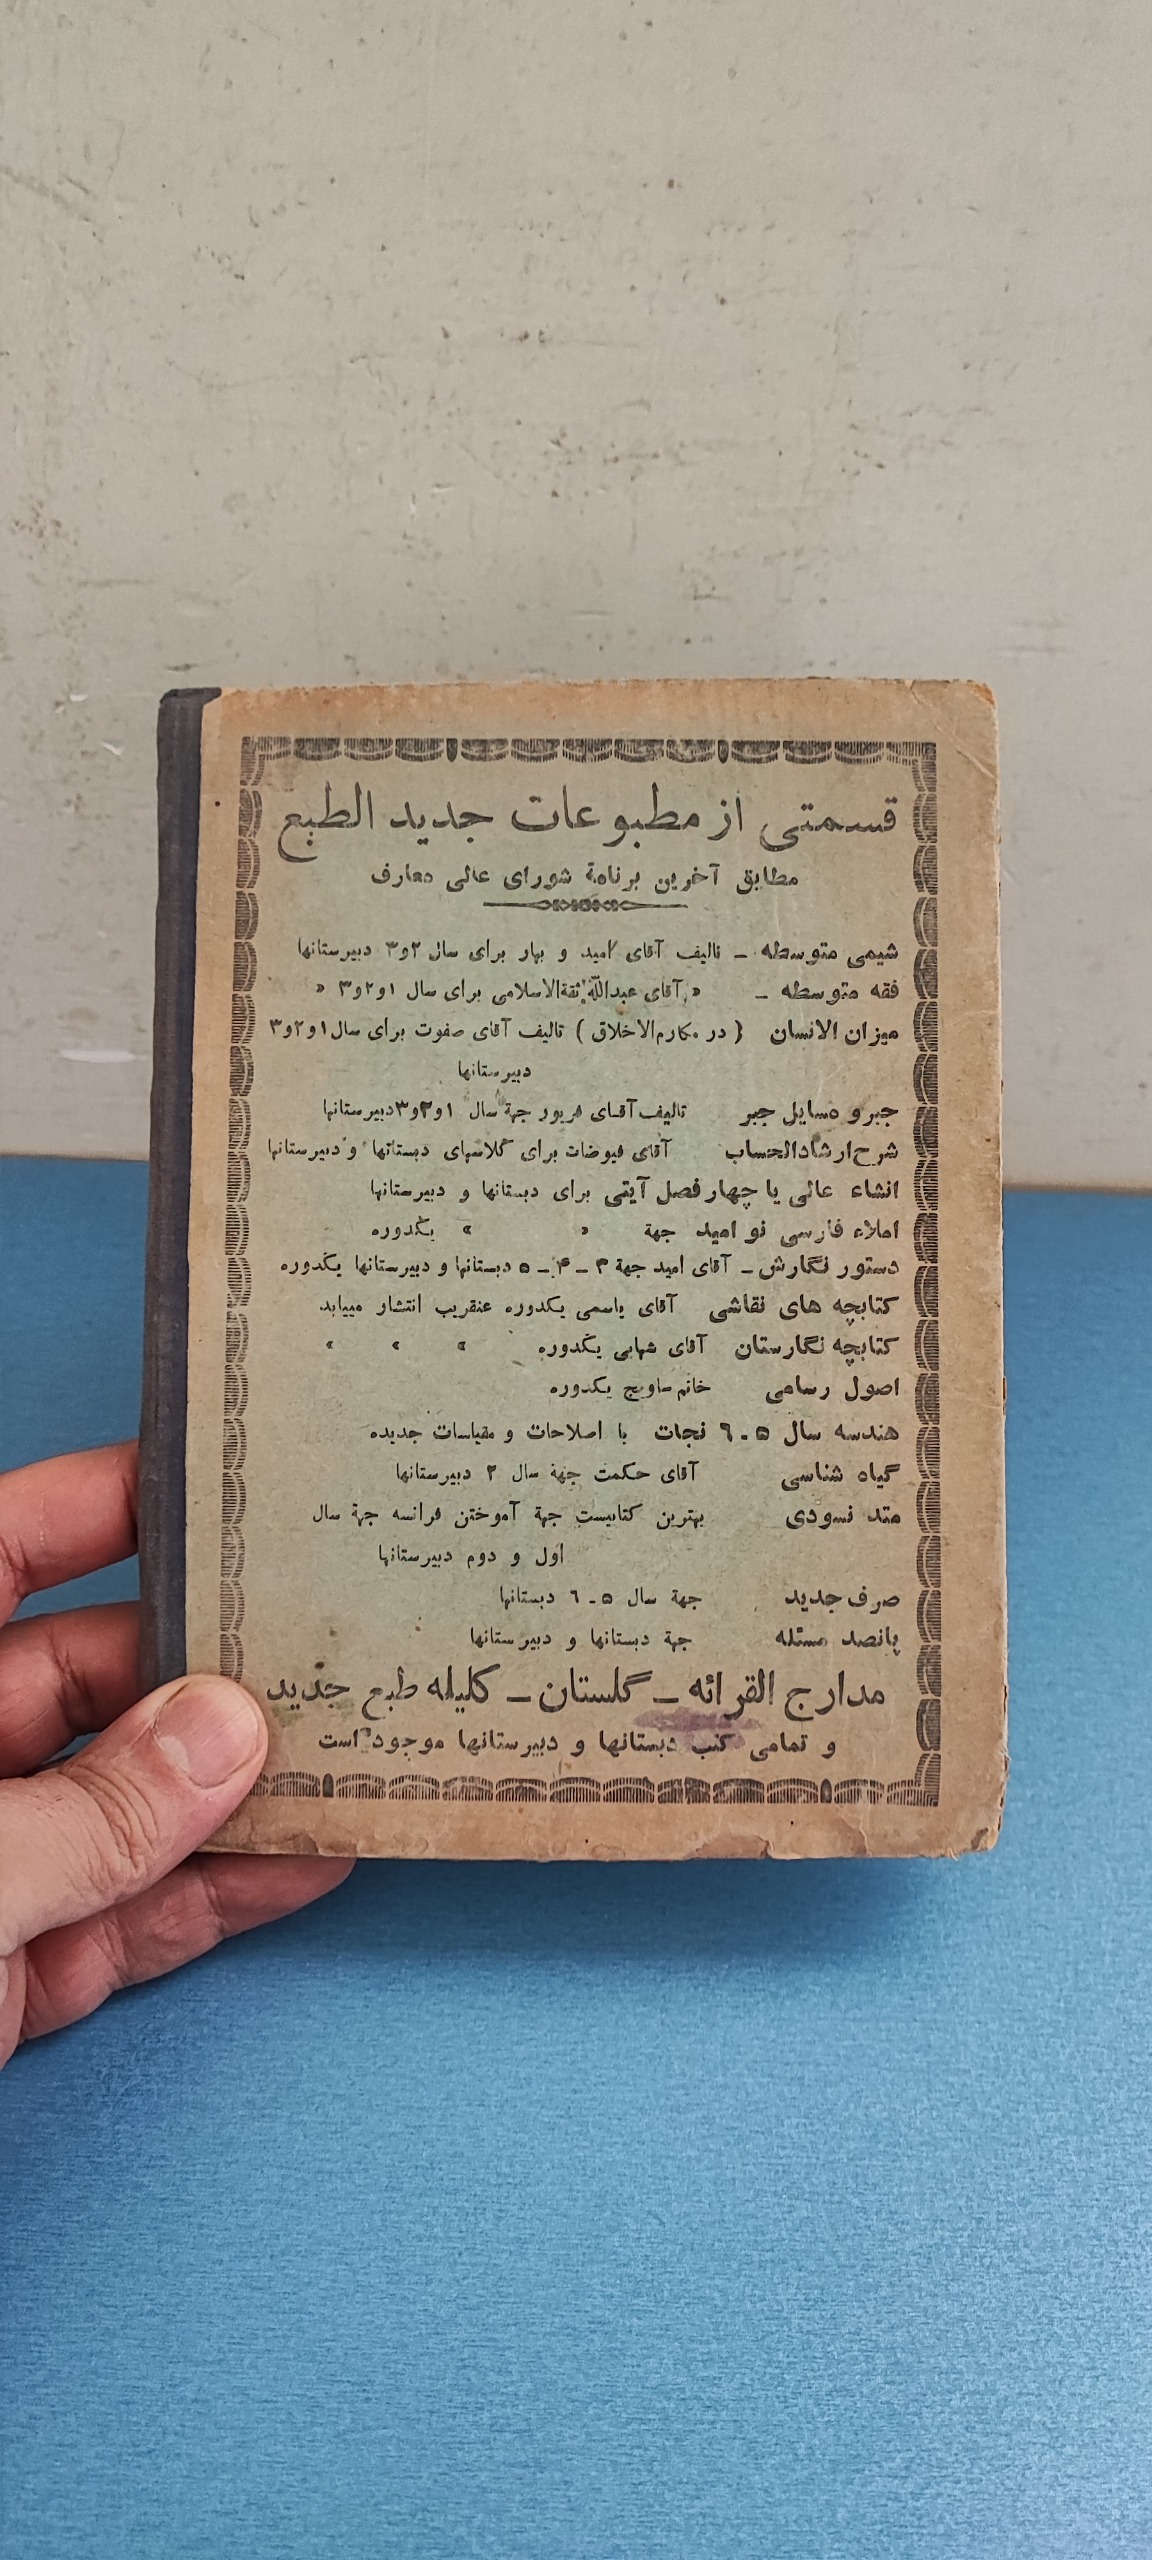 قسمتی از مطبوعات جدید الطبع
مطابق آخرین برنامهٔ شورای عالی معارف
شیمی متوسطه - تالیف آقای امید و بهار برای سال ۲و۳ دبیرستانها
فقه متوسطه - « آقای عبداللّه ثقةالاسلامی برای سال ۱و۲و۳ «
میزان الانسان ( در مکارم‌الاخلاق ) تالیف آقای صفوت برای سال ۱و۲و۳
دبیرستانها
جبر و مسایل جبر تالیف آقای فریور جهة سال ۱و۲و۳ دبیرستانها
شرح ارشادالحساب آقای فیوضات برای کلاسهای دبستانها و دبیرستانها
انشاء عالی یا چهار فصل آیتی برای دبستانها و دبیرستانها
املاء فارسی نو امید جهة « » یکدوره
دستور نگارش - آقای امید جهة ۳ - ۴ - ۵ دبستانها و دبیرستانها یکدوره
کتابچه های نقاشی آقای یاسمی یکدوره عنقریب انتشار مییابد
کتابچه نگارستان آقای شهابی یکدوره » » »
اصول رسامی خانم یکدوره
هندسه سال ۵ - ٦ نجات با اصلاحات و مقیاسات جدیده
گیاه شناسی آقای حکمت جهة سال ۲ دبیرستانها
متد نسودی بهترین کتابیست جهة آموختن فرانسه جهة سال
اول و دوم دبیرستانها
صرف جدید جهة سال ۵ - ٦ دبستانها
پانصد مسئله جهة دبستانها و دبیرستانها
مدارج القرائه - گلستان - کلیله طبع جدید
و تمامی کتب دبستانها و دبیرستانها موجود است